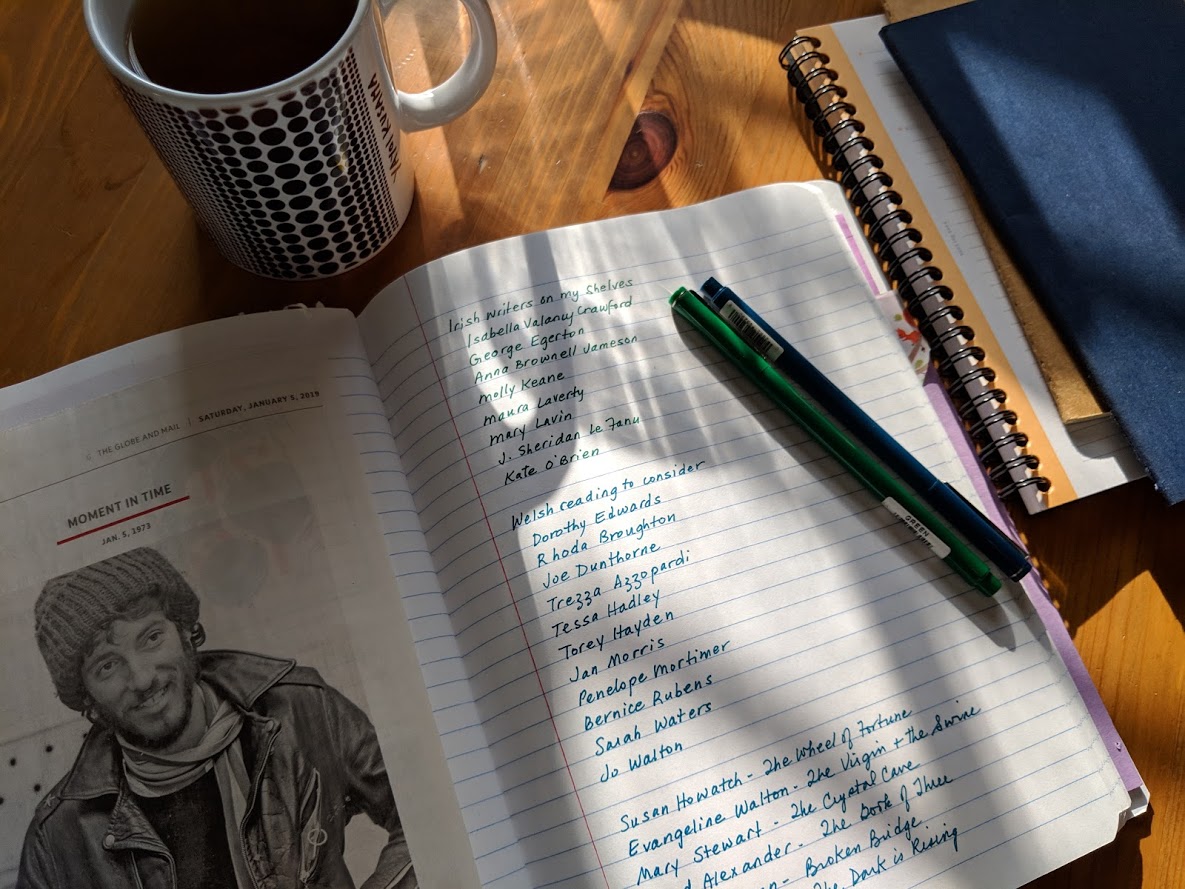 THE GLOBE AND MAIL | SATURDAY, JANUARY 5, 2019
MOMENT IN TIME
JAN. 5, 1973
Irish writers on my shelves
Isabella Valancy Crawford
George Egerton
Anna Brownell Jameson
Molly Keane
Maura Laverty
Mary Lavin
J. Sheridan Le Fanu
Kate O'Brien
Welsh reading to consider
Dorothy Edwards
Rhoda Broughton
Joe Dunthorne
Trezza Azzopardi
Tessa Hadley
Torey Hayden
Jan Morris
Penelope Mortimer
Bernice Rubens
Sarah Waters
Jo Walton
Susan Howatch - The Wheel of Fortune
Evangeline Walton - The Virgin + the Swine
Mary Stewart - The Crystal Cave
Alexander - The Book of Three
- Broken Bridge
The Dark is Rising
GREEN